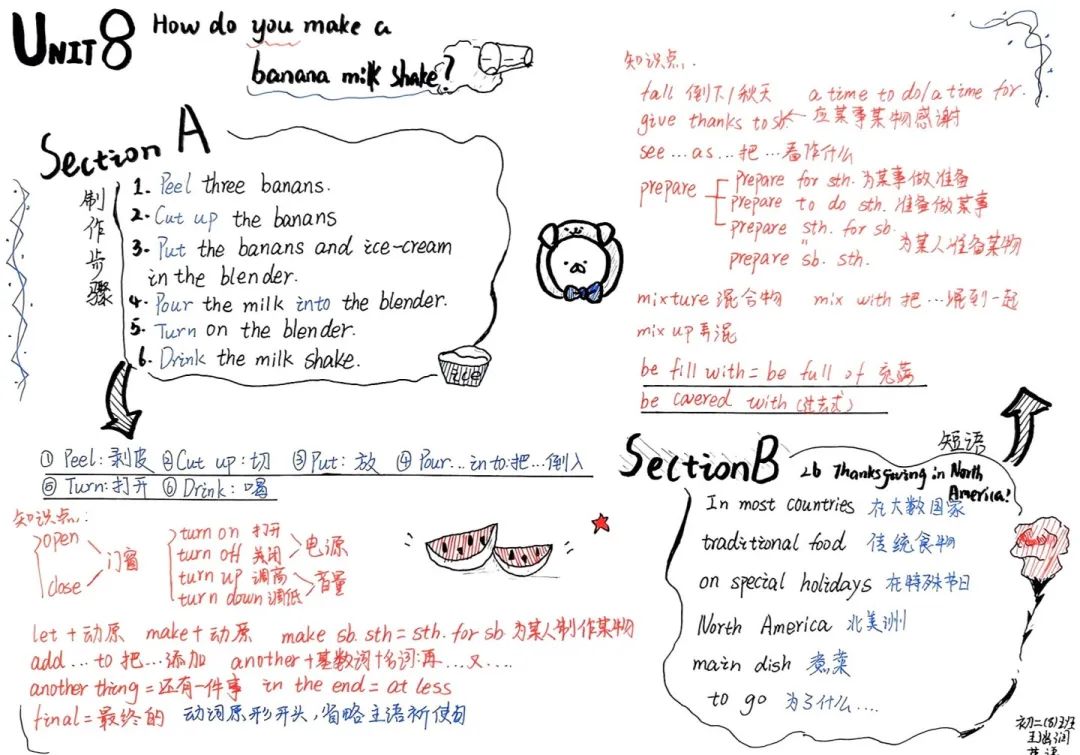 UNIT 8 How do you make a
banana milk shake?
Section A
制作步骤
1. Peel three banans.
2. Cut up the banans
3. Put the banans and ice-cream
in the blender.
4. Pour the milk into the blender.
5. Turn on the blender.
6. Drink the milk shake.
① Peel: 剥皮 ② Cut up: 切 ③ Put: 放 ④ Pour...in to: 把...倒入
⑤ Turn: 打开 ⑥ Drink: 喝
知识点:
open
close
门窗
turn on 打开
turn off 关闭
电源
turn up 调高
turn down 调低
音量
let + 动原 make + 动原 make sb. sth = sth. for sb. 为某人制作某物
add ... to 把...添加 another + 基数词 + 名词: 再...又...
another thing = 还有一件事 in the end = at less
final = 最终的 动词原形开头, 省略主语祈使句
知识点:
fall 倒下/秋天 a time to do/a time for.
give thanks to sb. 应某事某物感谢
see ... as ... 把...看作什么
prepare
prepare for sth. 为某事做准备
prepare to do sth. 准备做某事
prepare sth. for sb.
prepare sb. sth.
为某人准备某物
mixture 混合物 mix with 把...混到一起
mix up 弄混
be fill with = be full of 充满
be covered with (过去式)
Section B 短语
2b Thanksgiving in North
America!
In most countries 在大数国家
traditional food 传统食物
on special holidays 在特殊节日
North America 北美洲
main dish 煮菜
to go 为了什么....
初二(8)班
英语